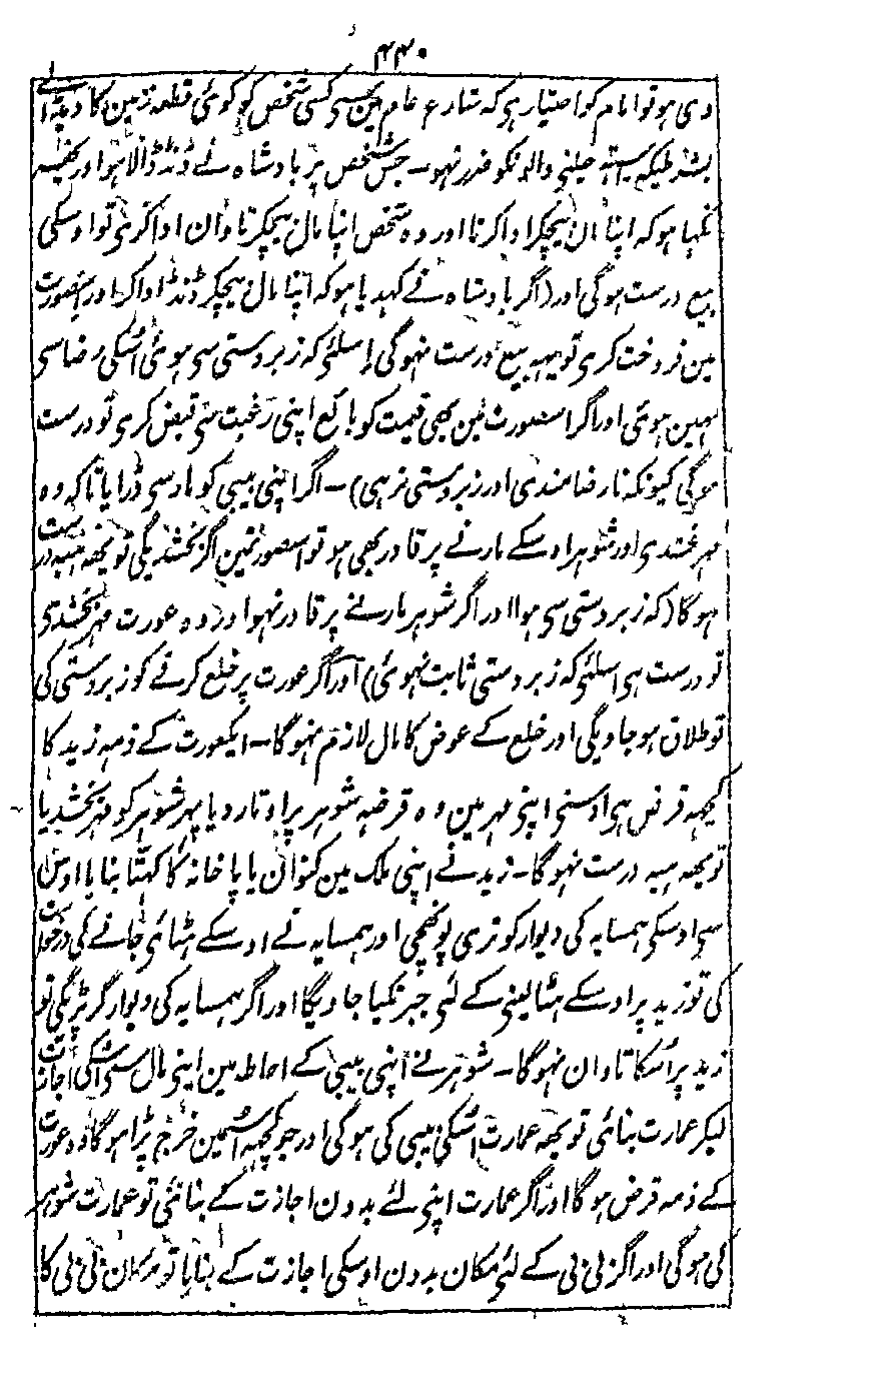 ۴۴۰
دی ہو تو امام کو اختیار ہی کہ شارع عام مین سی کسی شخص کو کوئی قطعہ زمین کا دیدالے
بشرطیکہ رستہ چلنی والونکو ضرر نہو۔ جس شخص پر بادشاہ نے ڈنڈ ڈالا ہو اور یہ
نکہا ہو کہ اپنا مال بیچکر ادا کرنا اور وہ شخص اپنا مال بیچکر تاوان ادا کری تو اوسکی
بیع درست ہوگی اور (اگر بادشاہ نے کہدیا ہو کہ اپنا مال بیچکر ڈنڈ ادا کر اور اسصورت
مین فروخت کری تو یہہ بیع درست نہوگی اسلئی کہ زبردستی سی ہوئی اُسکی رضا سی
نہین ہوئی اور اگر اسصورت مین بھی قیمت کو بائع اپنی رغبت سی قبض کری تو درست
ہوگی کیونکہ نارضامندی اور زبردستی نرہی)۔ اگر اپنی بیبی کو مار سی ڈرایا تاکہ وہ
مہر بخشدی اور شوہر اوسکے مارنے پر قادر بھی ہو تو اسصورتمین اگر بخشدیگی تو یہہ ہبہ درست
ہوگا (کہ زبردستی سی ہوا اور اگر شوہر مارنے پر قادر نہو اور وہ عورت مہر بخشدی
تو درست ہی اسلئی کہ زبردستی ثابت نہوئی) اور اگر عورت پر خلع کرنے کو زبردستی کی
تو طلاق ہو جاویگی اور خلع کے عوض کا مال لازم نہوگا۔ ایکعورت کے ذمہ زید کا
کچہہ قرض ہی اوسنی اپنی مہر مین وہ قرضہ شوہر پر اوتار دیا پہر شوہر کو مہر بخشدیا
تو یہہ ہبہ درست نہوگا۔ زید نے اپنی ملک مین کنوان یا پاخانہ کا کہتا بنایا اوس
سی اوسکی ہمسایہ کی دیوار کو تری پونہچی اور ہمسایہ نے اوسکے ہٹائی جانے کی درخواست
کی تو زید پر اوسکے ہٹالینی کے لئی جبر نکیا جاویگا اور اگر ہمسایہ کی دیوار گر پڑیگی تو
زید پر اُسکا تاوان نہوگا۔ شوہر نے اپنی بیبی کے احاطہ مین اپنی مال سی اُسکی اجازت
لیکر عمارت بنائی تو یہہ عمارت اُسکی بیبی کی ہوگی اور جو کچہہ اُسمین خرچ پڑا ہوگا وہ عورت
کے ذمہ قرض ہوگا اور اگر عمارت اپنی لئے بدون اجازت کے بنائی تو عمارت شوہر
کی ہوگی اور اگر بی بی کے لئی مکان بدون اوسکی اجازت کے بنایا تو مکان بی بی کا